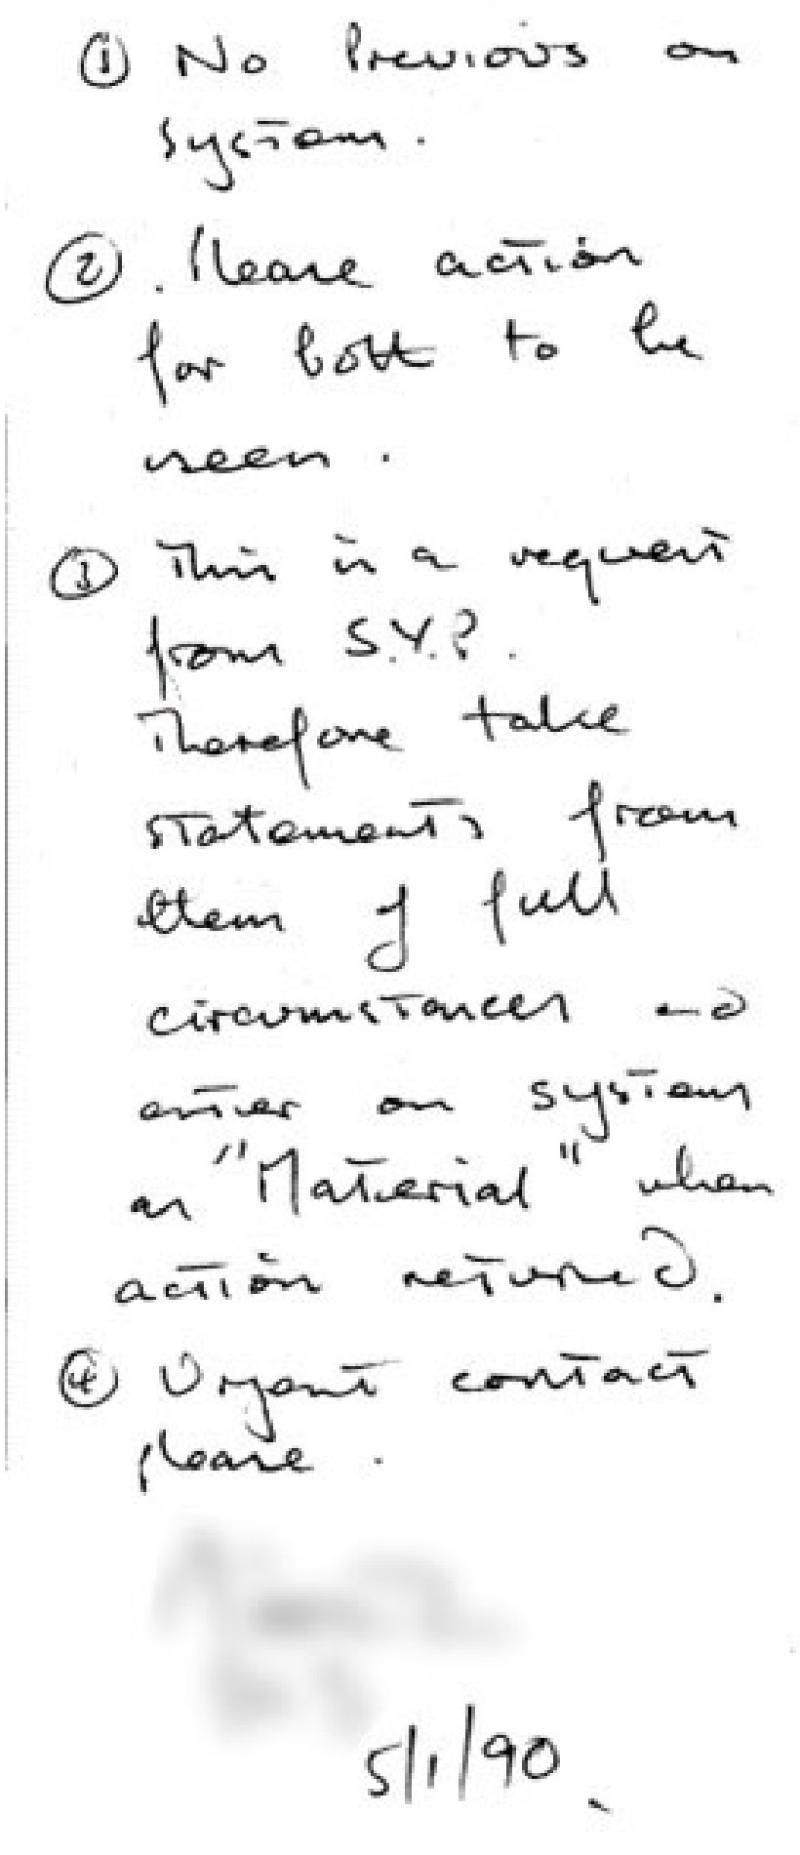 ① No Previous on
system.
② . Please action
for both to be
seen.
③ This is a request
from S.Y.P.
Therefore take
statements from
them of full
circumstances and
enter on system
as "Material" when
action returned.
④ Urgent contact
please.
5/1/90.